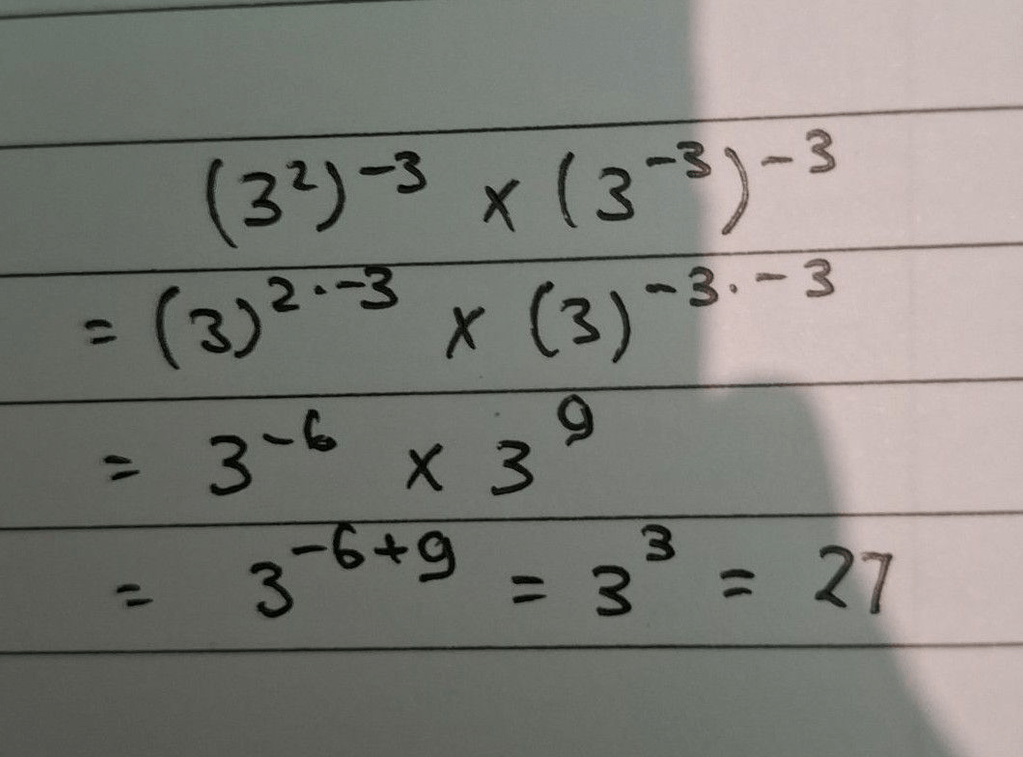 (3²)⁻³ × (3⁻³)⁻³
= (3)²·⁻³ × (3)⁻³·⁻³
= 3⁻⁶ × 3⁹
= 3⁻⁶⁺⁹ = 3³ = 27